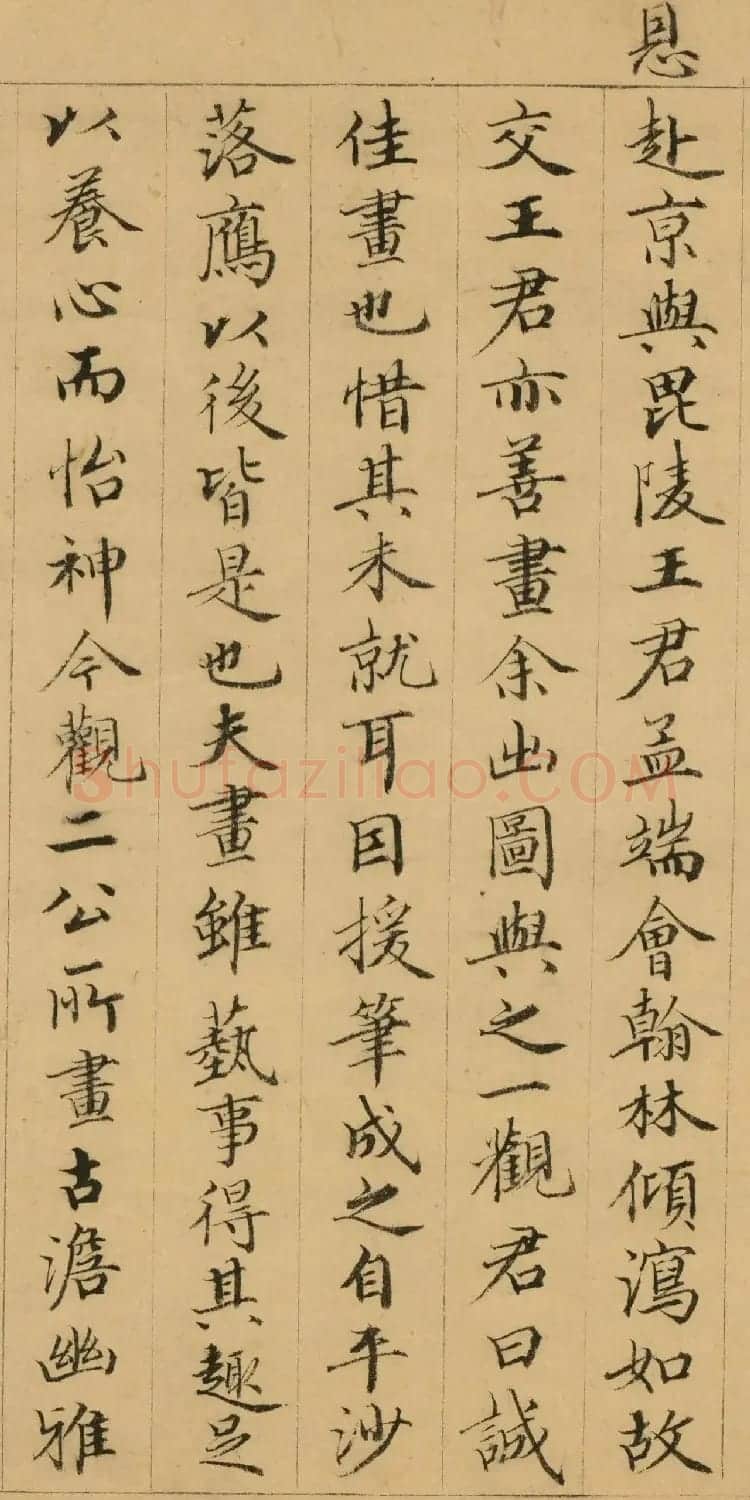 恩赴京與毘陵王君孟端會翰林傾瀉如故
交王君亦善畫余出圖與之一觀君曰誠
佳畫也惜其未就耳因援筆成之自平沙
落鴈以後皆是也夫畫雖藝事得其趣足
以養心而怡神今觀二公所畫古澹幽雅
shufaziliao.COM